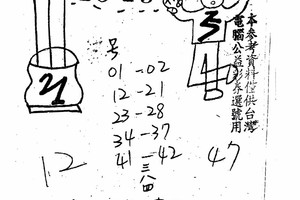 本參考資料僅供台灣
電腦公益彩券選號用
5
1
21
号
01-02
12-21
23-28
34-37
41-42
三八四
12
47